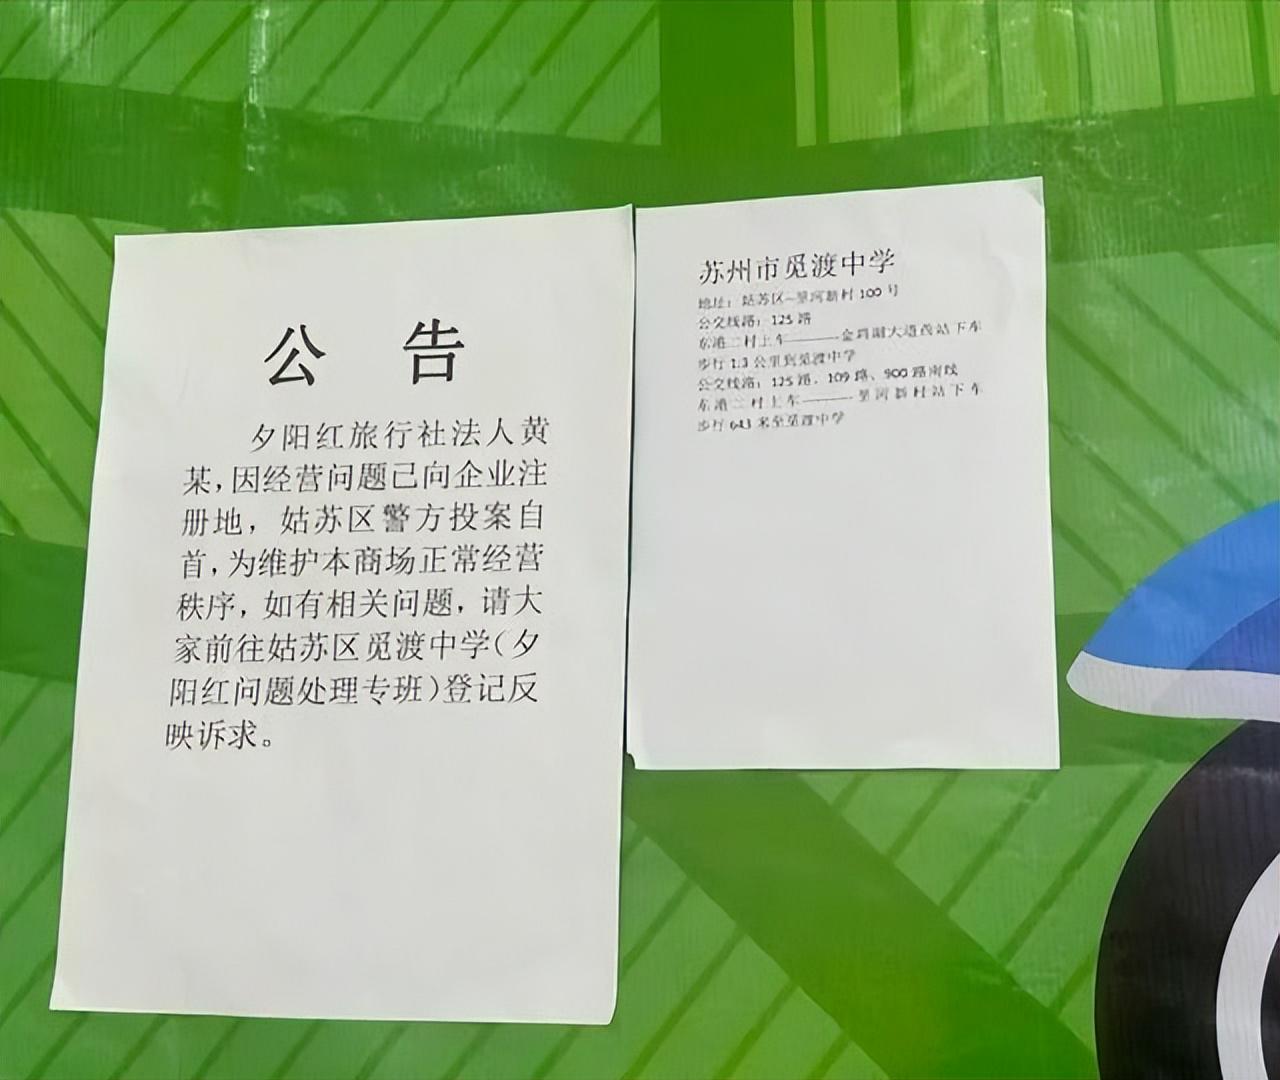 公 告
夕阳红旅行社法人黄
某,因经营问题已向企业注
册地，姑苏区警方投案自
首,为维护本商场正常经营
秩序，如有相关问题，请大
家前往姑苏区觅渡中学(夕
阳红问题处理专班)登记反
映诉求。
苏州市觅渡中学
地址：姑苏区-里河新村 100 号
公交线路：125 路
东港二村上车————金鸡湖大道西站下车
步行 1.3 公里到觅渡中学
公交线路：125 路、109 路、900 路南线
东港二村上车————里河新村站下车
步行 643 米至觅渡中学